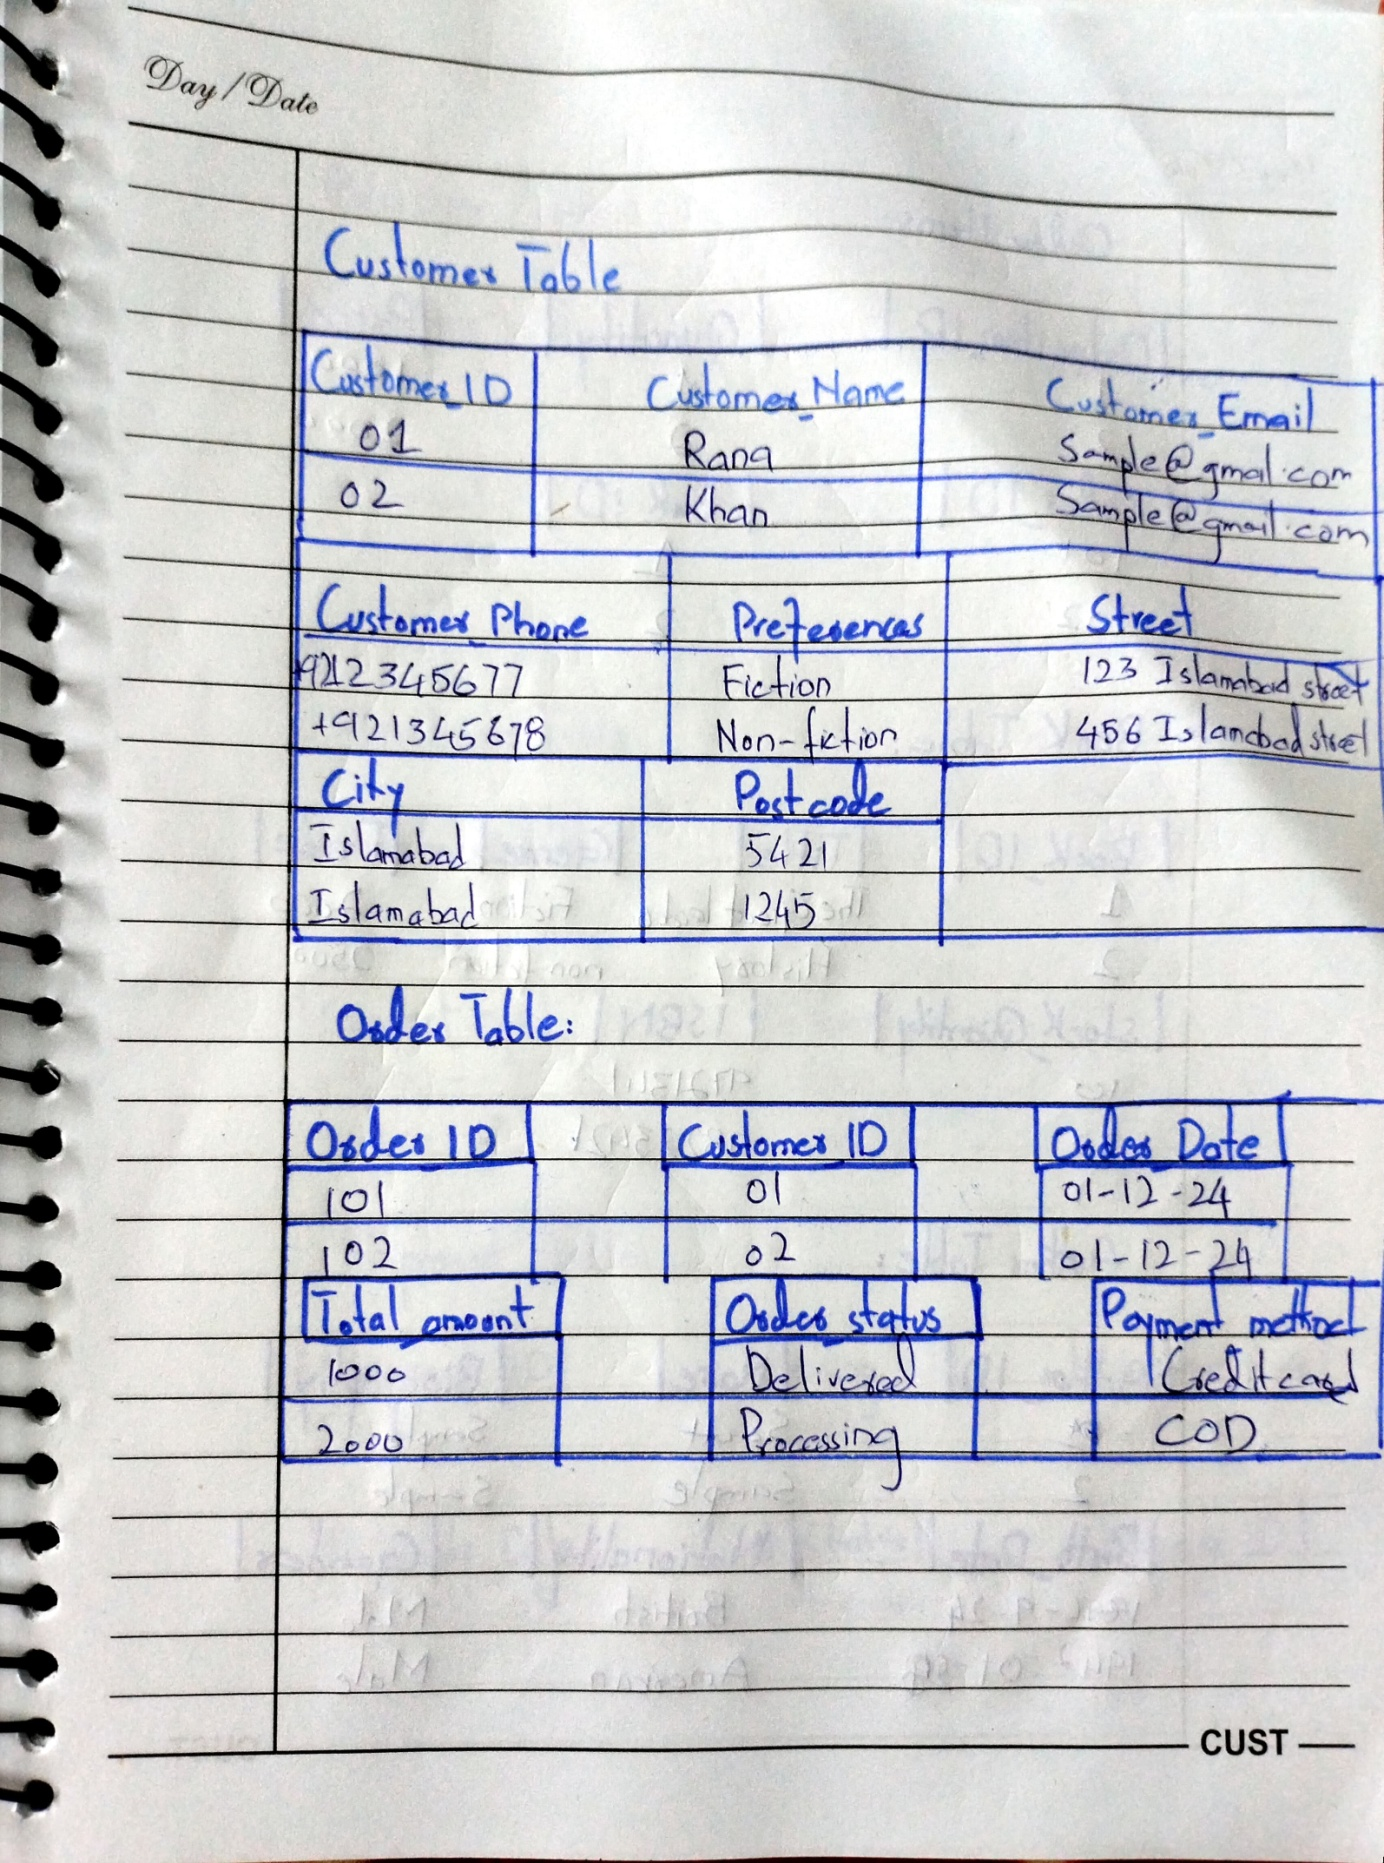 Day/Date
Customer Table
Customer_ID Customer_Name Customer_Email
01 Rana Sample@gmal.com
02 Khan Sample@gmail.com
Customer_Phone Preferences Street
9212345677 Fiction 123 Islamabad street
+921345678 Non-fiction 456 Islamabad street
City Postcode
Islamabad 5421
Islamabad 1245
Order Table:
Order ID Customer_ID Order_Date
101 01 01-12-24
102 02 01-12-24
Total_amount Order_status Payment method
1000 Delivered Credit card
2000 Processing COD
CUST